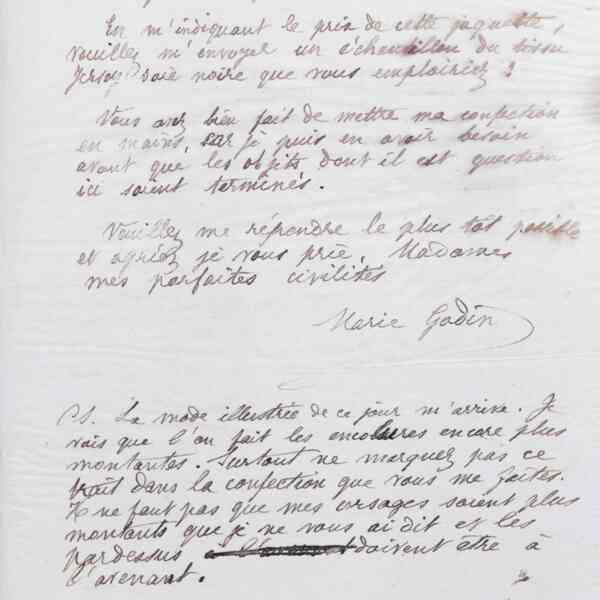 En m'indiquant le prix de cette jaquette,
veuillez m'envoyer un échantillon du tissu
Jersey soie noire que vous emploiriez ?
Vous avez bien fait de mettre ma confection
en mains, car je puis en avoir besoin
avant que les objets dont il est question
ici soient terminés.
Veuillez me répondre le plus tôt possible
et agréez je vous prie, Madames
mes parfaites civilités
Marie Godin
PS. La mode illustrée de ce jour m'arrive. Je
vois que l'on fait les encolures encore plus
montantes. Surtout ne marquez pas ce
trait dans la confection que vous me faites.
Il ne faut pas que mes corsages soient plus
montants que je ne vous ai dit et les
pardessus doivent être à
l'avenant.